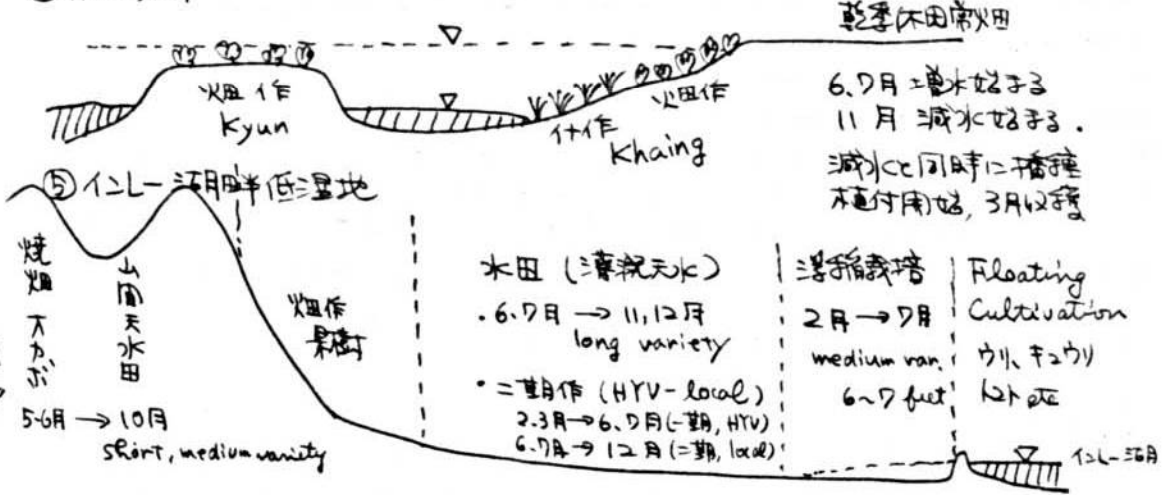 乾季休田常畑
畑作
Kyun
稲作
Khaing
畑作
6.7月 増水始まる
11月 減水始まる.
減水と同時に播種
植付開始, 3月収穫
⑤ インレー湖畔低湿地
焼畑 オカボ
山間天水田
5-6月 → 10月
short, medium variety
畑作
果樹
水田 (灌漑天水)
・6.7月 → 11,12月
long variety
・二期作 (HYV-local)
2.3月→6.7月(一期, HYV)
6.7月→12月(二期, local)
浮稲栽培
2月→7月
medium var.
6~7 feet
Floating
Cultivation
ウリ、キュウリ
トマト etc
インレー湖